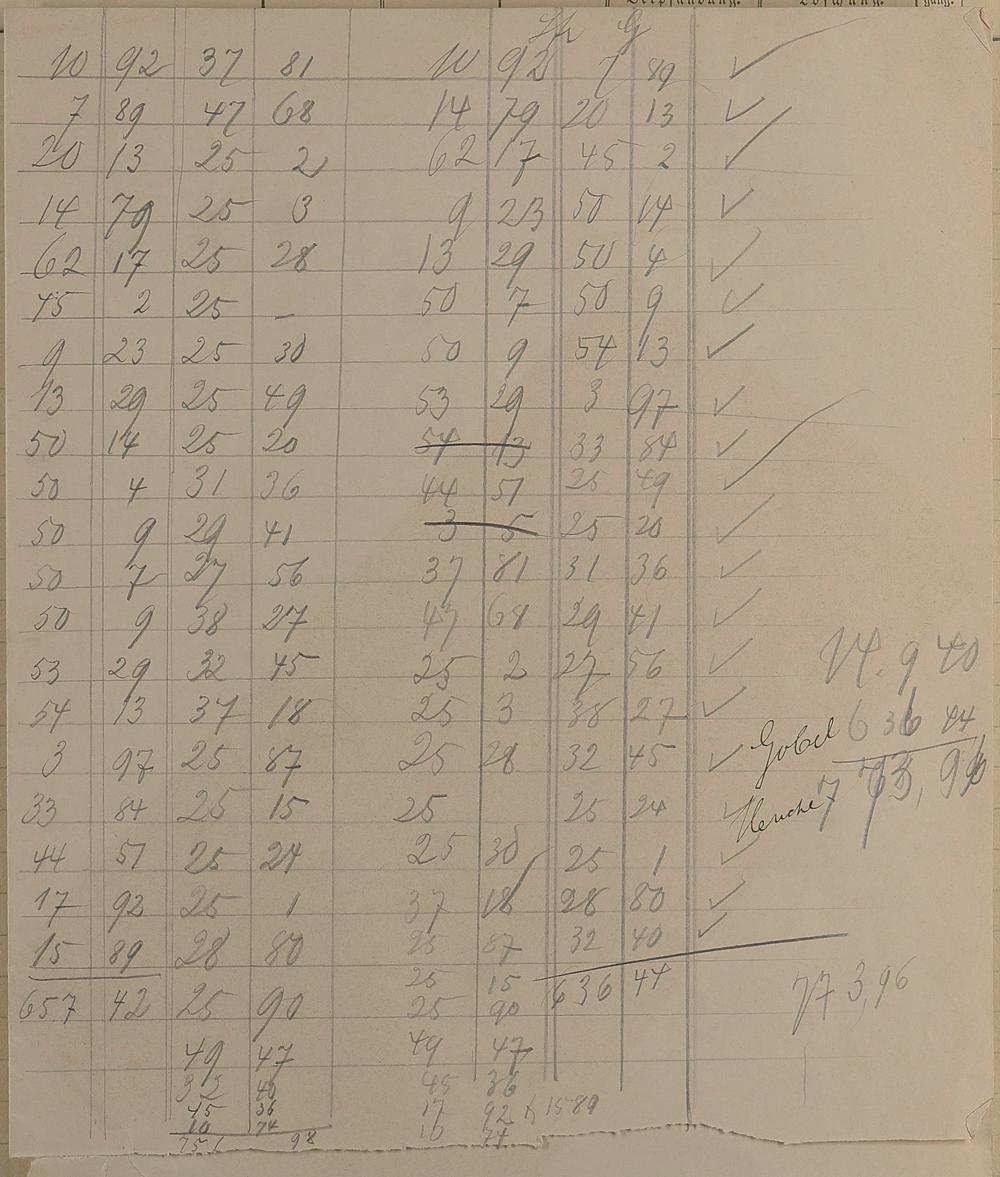 10 92 37 81 10 92 7 89 ✓
7 89 47 68 14 79 20 13 ✓
20 13 25 2 62 17 45 2 ✓
14 79 25 3 9 23 50 14 ✓
62 17 25 28 13 29 50 4 ✓
45 2 25 – 50 7 50 9 ✓
9 23 25 30 50 9 54 13 ✓
13 29 25 49 53 29 3 97 ✓
50 14 25 20 54 13 33 84 ✓
50 4 31 36 44 57 25 49 ✓
50 9 29 41 3 5 25 20 ✓
50 7 27 56 37 81 31 36 ✓
50 9 38 27 47 68 29 41 ✓
53 29 32 45 25 2 27 56 ✓
54 13 37 18 25 3 38 27 ✓
3 97 25 87 25 28 32 45 ✓
33 84 25 15 25 25 24 ✓
44 57 25 24 25 30 25 1 ✓
17 92 25 1 37 18 28 80 ✓
15 89 28 80 25 87 32 40 ✓
25 15 636 44
657 42 25 90 25 90
49 47 49 47
32 40 45 36
45 36 17 92 15 89
10 74 10 74
98
9 40
Gobel 636 44
773,96